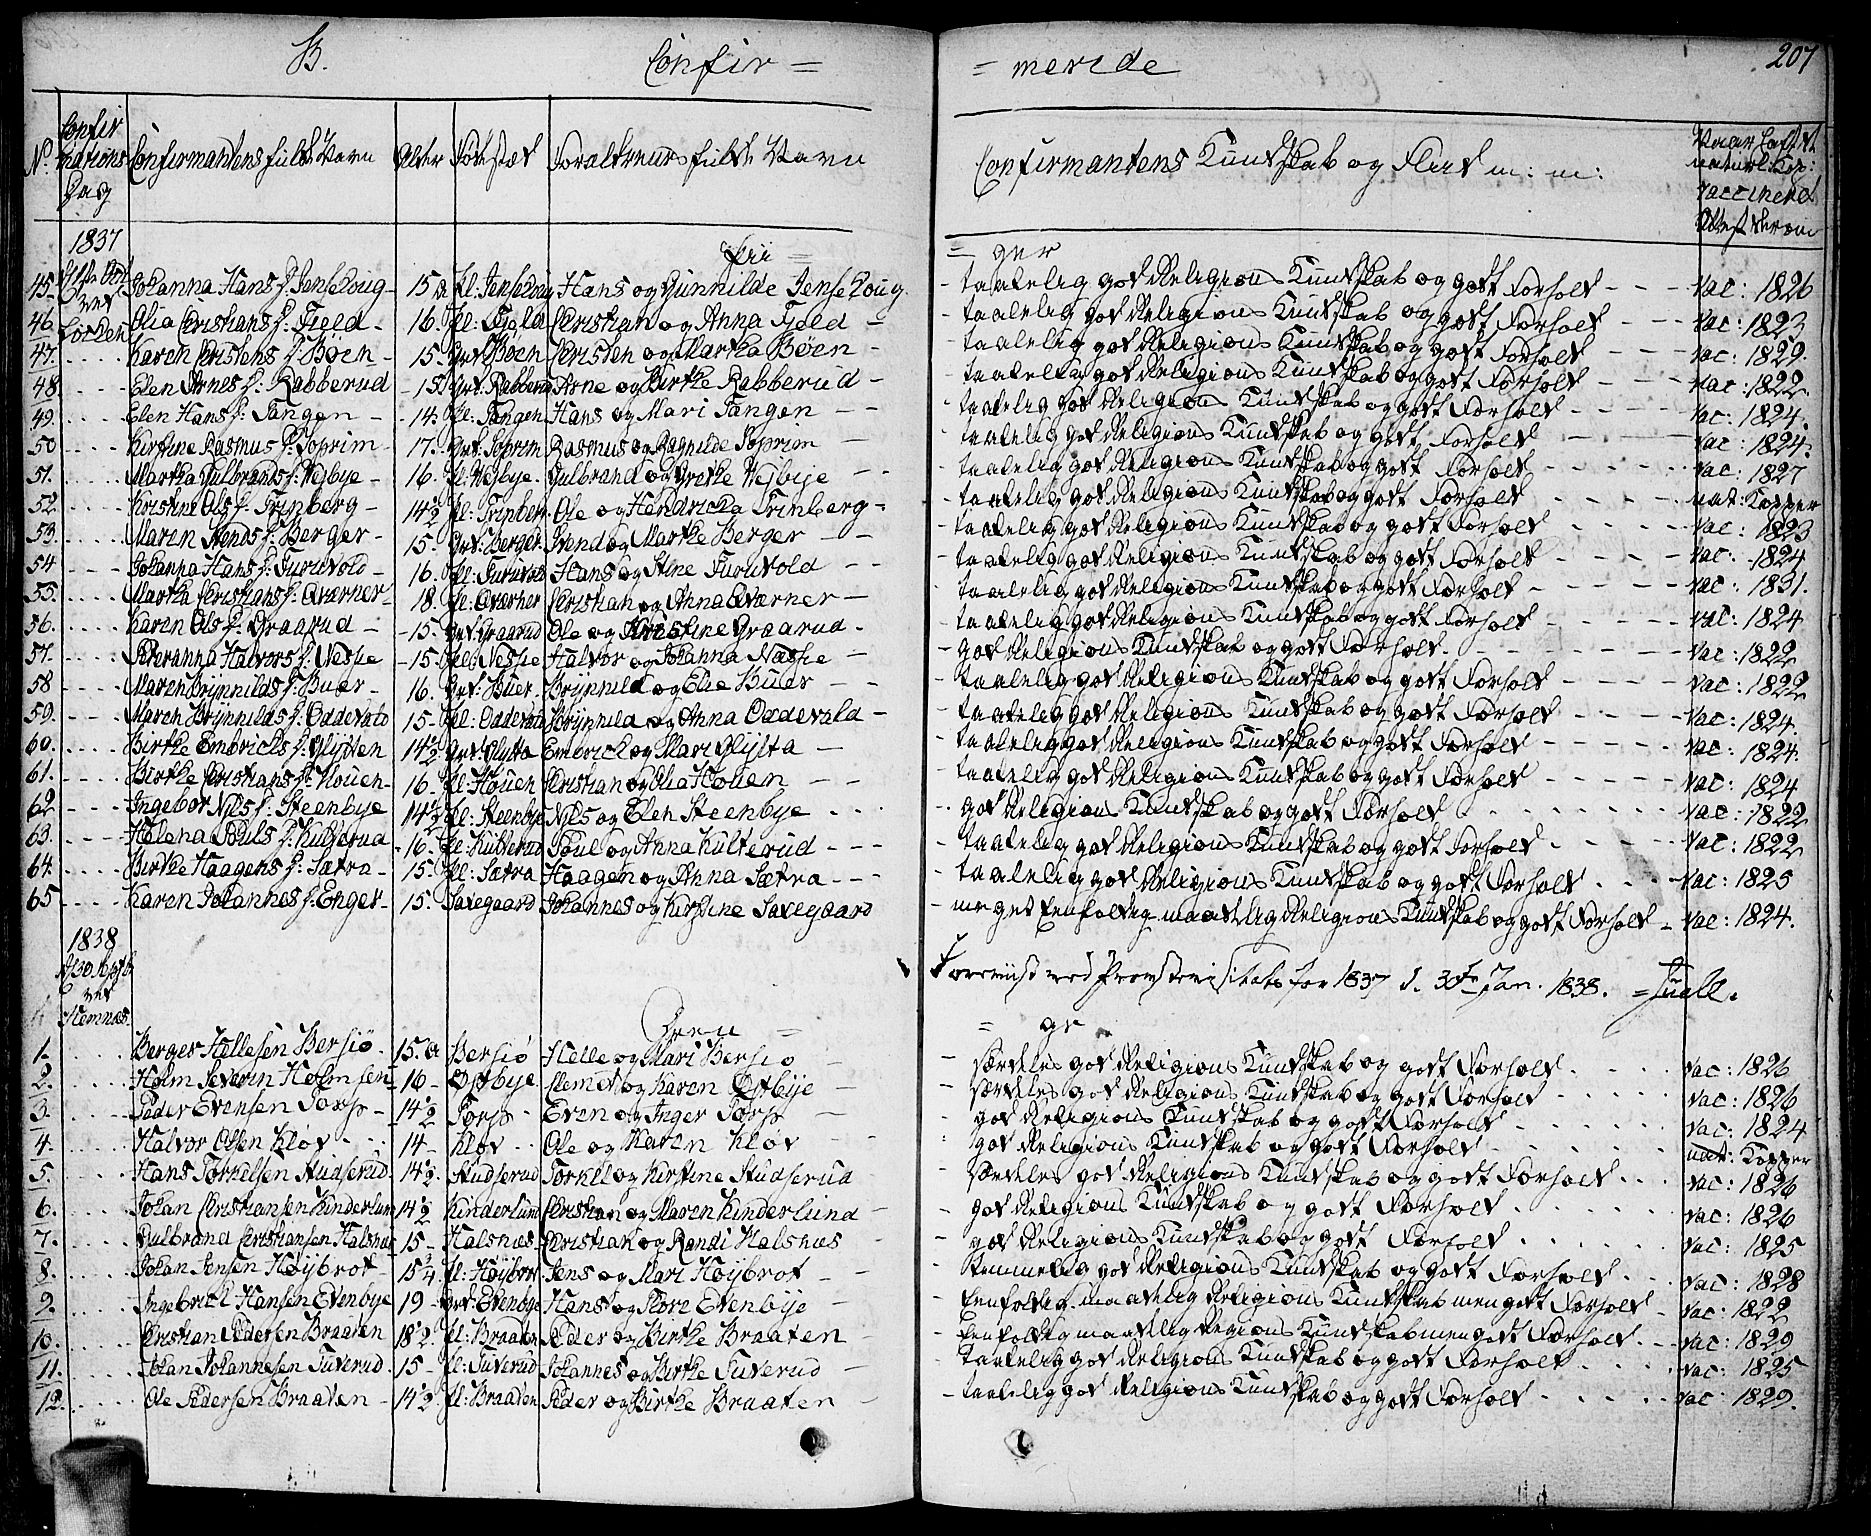 B. Confir = = merede 207
No. Confirmations Dag Confirmantens fulde Navn Alder Fødested Forældrenes fulde Navn Confirmantens Kundskab og Flid m: m: Naar havt naturl. Kop: vaccinered Attest derom
1837
Pi = = ger
45. Johanna Hans D: Jensehoug - 15 a Pl: Jensehoug Hans og Gunnilde Jensehoug - taalelig god Religions Kundskab og godt Forhold - - - vac: 1826
46. Olia Christians D: Fjeld - 16. Pl: Fjeld Christian og Anna Fjeld - taalelig god Religions Kundskab og godt Forhold - - - vac: 1823
47. Karen Christens D: Bøen - 15 Grd: Bøen Christen og Martha Bøen - taalelig god Religions Kundskab og godt Forhold - - - vac: 1829.
48. Elen Arnes D: Rabberud - 15 Grd: Rabberud Arne og Birthe Rabberud - taalelig god Religions Kundskab og godt Forhold - - - vac: 1822.
49. Elen Hans D: Tangen - 14. Pl: Tangen Hans og Mari Tangen - - taalelig god Religions Kundskab og godt Forhold - - - vac: 1824.
50 Kirstine Rasmus D: Soprim - 17. Grd: Soprim Rasmus og Ragnilde Soprim - taalelig god Religions Kundskab og godt Forhold - - - vac: 1824.
51. Martha Gulbrands D: Wejbye - 16. Pl: Wejbye. Gulbrand og Grethe Wejbye - - taalelig god Religions Kundskab og godt Forhold - - - vac: 1827
52. Kristine Ols D: Trinberg - 14½ Pl: Trinber. Ole og Hendricka Trinberg - taalelig god Religions Kundskab og godt Forhold - - - nat: Kopper
53. Maren Svends D: Berger - 15. Grd: Berger Svend og Marthe Berger - - taalelig god Religions Kundskab og godt Forhold - - - vac: 1823
54 Johanna Hans D: Furuvold - 16. Pl: Furuvold Hans og Stine Furuvold - - taalelig god Religions Kundskab og godt Forhold - - - vac: 1824
55. Martha Christians D: Qværner - 18. Pl: Qværner Christian og Anna Qværner - taalelig god Religions Kundskab og godt Forhold - - - vac: 1831.
56. Karen Ols D: Graarud - 15. Grd: Graarud Ole og Kirstine Graarud - taalelig god Religions Kundskab og godt Forhold - - - vac: 1824
57. Peteranna Halvors D: Næssie - 15 Pl: Nessie Halvor og Johanna Næssie - god Religions Kundskab og godt Forhold - - - vac: 1822
58 Maren Brynnilds D: Buer - 16. Grd: Buer. Brynnild og Elie Buer - - taalelig god Religions Kundskab og godt Forhold - - - vac: 1822
59. Maren Brynnilds D: Oddevald 15 - Pl: Oddevald Brynnild og Anna Oddevald - taalelig god Religions Kundskab og godt Forhold - - - vac: 1824.
60. Birthe Embricks D: Glysten 14½ Grd: Glysta Embrick og Mari Glysta - taalelig god Religions Kundskab og godt Forhold - - - vac: 1824.
61. Birthe Christians D: Houen - 16. Pl: Houen Christian og Olia Houen - - taalelig god Religions Kundskab og godt Forhold - - - vac: 1824
62 Ingebor Nils D: Steenbye 14½ Pl: Steenbye Nils og Elen Steenbye - god Religions Kundskab og godt Forhold - - - vac: 1822
63. Helena Pouls D: Kulterud - 16. Pl: Kulterud Poul og Anna Kulterud - - - taalelig god Religions Kundskab og godt Forhold - - - vac: 1822
64. Birthe Haagens D: Sætra - 15. Pl: Sætra Haagen og Anna Sætra - - - taalelig god Religions Kundskab og godt Forhold - - - vac: 1825
65 Karen Johannes D: Enger - 15. Saxegaard Johannes og Kirstine Saxegaard - meget Eenfoldig maadelig Religions Kundskab og godt Forhold - vac: 1824.
1838
ved Hemnæs.
Foreviist ved Provstevisitats for 1837 d. 3de Jan. 1838.
Dren = = ge
1. Berger Hellesen Bersiö - 15. a Bersiö Helle og Mari Bersiö - særdeles god Religions Kundskab og godt Forhold - - - vac: 1826
2. Holm Severin Holmsen 16 - Østbye Clemet og Karen Østbye - særdeles god Religions Kundskab og godt Forhold - - - vac: 1826
3. Peder Evensen Torp - 14½ Torp - Even og Inger Torp - god Religions Kundskab og godt Forhold - - - vac: 1824
4. Halvor Olsen Kløv - 14 - Kløv - Ole og Karen Kløv - god Religions Kundskab og godt Forhold - - - nat: Kopper
5. Hans Torkelsen Studserud - 14½. Studserud Torkel og Kirstine Studserud særdeles god Religions Kundskab og godt Forhold - - - vac: 1826
6. Johan Christiansen Kinderlund 14½ Kinderlund Christian og Maren Kinderlund - god Religions Kundskab og godt Forhold - - - vac: 1826
7. Gulbrand Christiansen Halsnæs 15 - Halsnæs Christian og Randi Halsnæs - god Religions Kundskab og godt Forhold - - - vac: 1825
8. Johan Jensen Høybrot - 15¾ Pl: Høybrot Jens og Mari Høybrot - - temmelig god Religions Kundskab og godt Forhold - - - vac: 1828
9. Ingebrict Hansen Evenbye 19 - Grd: Evenbye Hans og Kore Evenbye - - Eenfoldig. maadelig Religions Kundskab men godt Forhold - vac: 1822
10. Christian Pedersen Braaten 18½. Pl: Braaten Peder og Birthe Braaten - Eenfoldig maadelig Religions Kundskab men godt Forhold - vac: 1829
11. Johan Johannesen Tuverud - 15 - Pl: Tuverud Johannes og Birthe Tuverud - taalelig god Religions Kundskab og godt Forhold - - - vac: 1825
12. Ole Pedersen Braaten - 14½. Pl: Braaten Peder og Birthe Braaten - taalelig god Religions Kundskab og godt Forhold - - - vac: 1829.